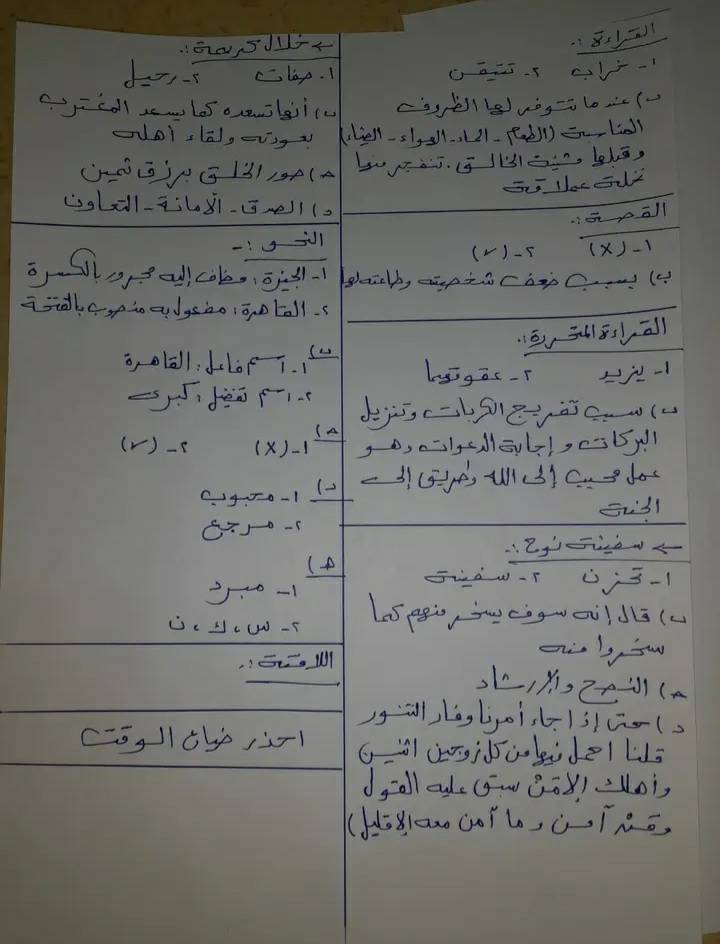 القراءة :.
١- خراب    ٢- تتيقن
ب) عندما تتوفر لها الظروف
المناسبة (الطعام - الماء - الهواء - الضياء)
وقبلها مشيئة الخالق. تنفجر منها
نخلة عملاقة
القصة :.
١- (X)    ٢- (✓)
ب) بسبب ضعف شخصيته وطاعته لها
القراءة المتحررة :.
١- يزيد    ٢- عقوقهما
ب) سبب تفريج الكربات وتنزيل
البركات وإجابة الدعوات وهو
عمل محبب إلى الله وطريق إلى
الجنة
← سفينة نوح :.
١- تحزن    ٢- سفينة
ب) قال إنه سوف يسخر منهم كما
سخروا منه
ج) النصح والإرشاد
د) حتى إذا جاء أمرنا وفار التنور
قلنا احمل فيها من كل زوجين اثنين
وأهلك إلا من سبق عليه القول
ومن آمن وما آمن معه إلا قليل)
← خلال كريمة :.
١- صفات    ٢- رحيل
ب) أنها تسعده كما يسعد المغترب
بعودته ولقاء أهله
ج) صور الخلق برزق ثمين
د) الصدق - الأمانة - التعاون
النحو :-
١- الجيزة : مضاف إليه مجرور بالكسرة
٢- القاهرة : مفعول به منصوب بالفتحة
ب) ١- اسم فاعل : القاهرة
٢- اسم تفضيل : كبرى
ج) ١- (X)    ٢- (✓)
د) ١- محبوب
٢- مرجع
هـ) ١- مبرد
٢- س ، ك ، ن
اللافتة :.
احذر ضياع الوقت